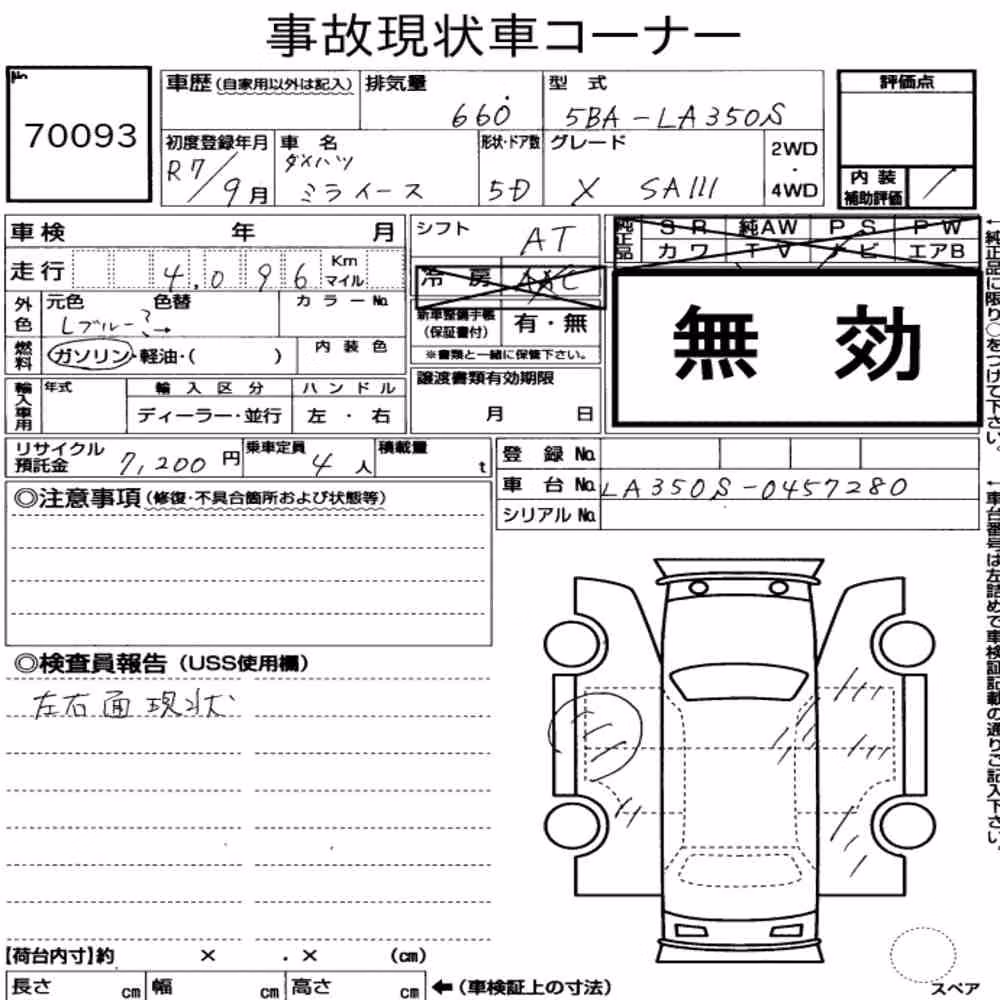 事故現状車コーナー
No.
70093
車歴 (自家用以外は記入)
排気量
660
型式
5BA-LA350S
評価点
初度登録年月
R7/9月
車名
ダイハツ
ミライース
形状・ドア数
5D
グレード
X SAIII
2WD
・
4WD
内装
補助評価
/
車検 年 月
シフト
AT
純正品
SR 純AW PS PW
カワ TV ナビ エアB
走行 4.096 Km
マイル
冷房 AAC
外色
元色 色替
Lブルー
カラーNo.
新車整備手帳
(保証書付)
有・無
※書類と一緒に保管下さい。
燃料
ガソリン・軽油・( )
内装色
無効
輸入車用
年式
輸入区分
ディーラー・並行
ハンドル
左・右
譲渡書類有効期限
月 日
リサイクル
預託金
7,200円
乗車定員
4人
積載量
t
登録No.
車台No. LA350S-0457280
シリアルNo.
◎注意事項(修復・不具合箇所および状態等)
◎検査員報告(USS使用欄)
左右面現状
【荷台内寸】約 × . × (cm)
長さ cm 幅 cm 高さ cm
←(車検証上の寸法)
スペア
←純正品に限り○をつけて下さい。
←車台番号は左詰めで車検証記載の通りご記入下さい。